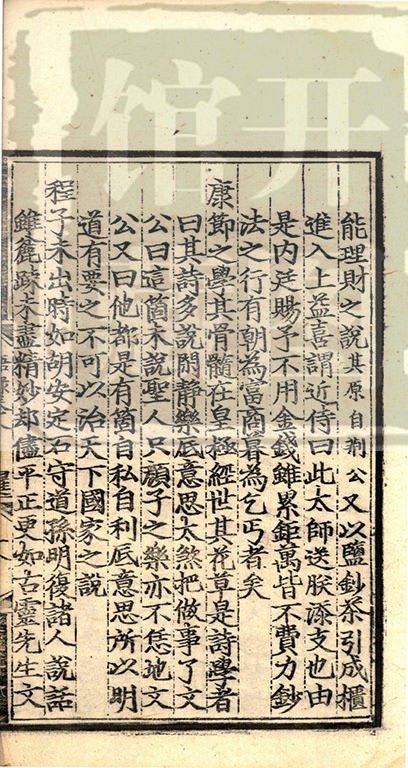 能理財之說其原自荆公又以鹽鈔茶引成櫃
進入上益喜謂近侍曰此太師送朕添支也由
是内廷賜予不用金錢雖累鉅萬皆不費力鈔
法之行有朝為富商暮為乞丐者矣
康節之學其骨髓在皇極經世其花草是詩學者
曰其詩多說閒靜樂底意思太煞把做事了文
公曰這箇未說聖人只顔子之樂亦不恁地文
公又曰他都是有箇自私自利底意思所以明
道有要之不可以治天下國家之說
程子未出時如胡安定石守道孫明復諸人說話
雖麄疎未盡精妙却儘平正更如古靈先生文